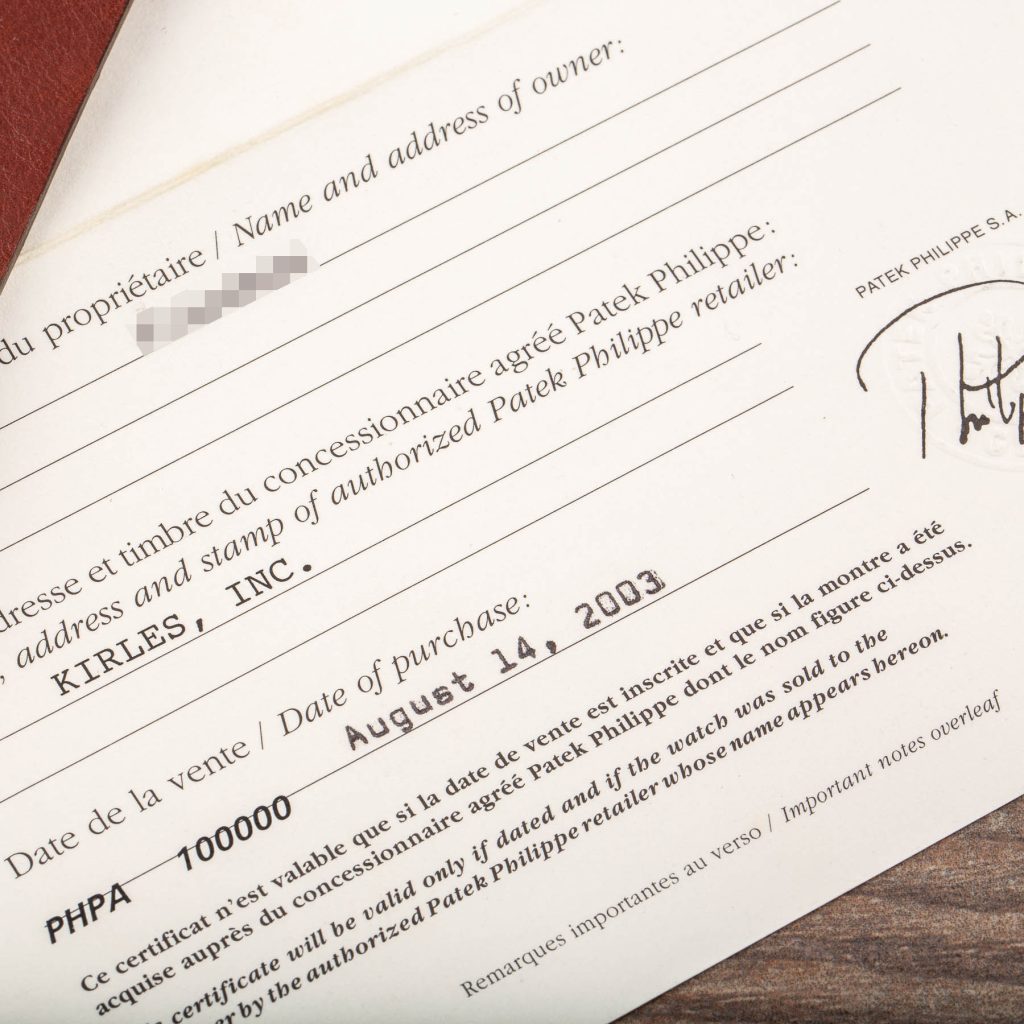 du propriétaire / Name and address of owner:
dresse et timbre du concessionnaire agréé Patek Philippe:
, address and stamp of authorized Patek Philippe retailer:
KIRLES, INC.
PATEK PHILIPPE S.A.
Date de la vente / Date of purchase:
August 14, 2003
PHPA 100000
Ce certificat n'est valable que si la date de vente est inscrite et que si la montre a été
acquise auprès du concessionnaire agréé Patek Philippe dont le nom figure ci-dessus.
certificate will be valid only if dated and if the watch was sold to the
er by the authorized Patek Philippe retailer whose name appears hereon.
Remarques importantes au verso / Important notes overleaf